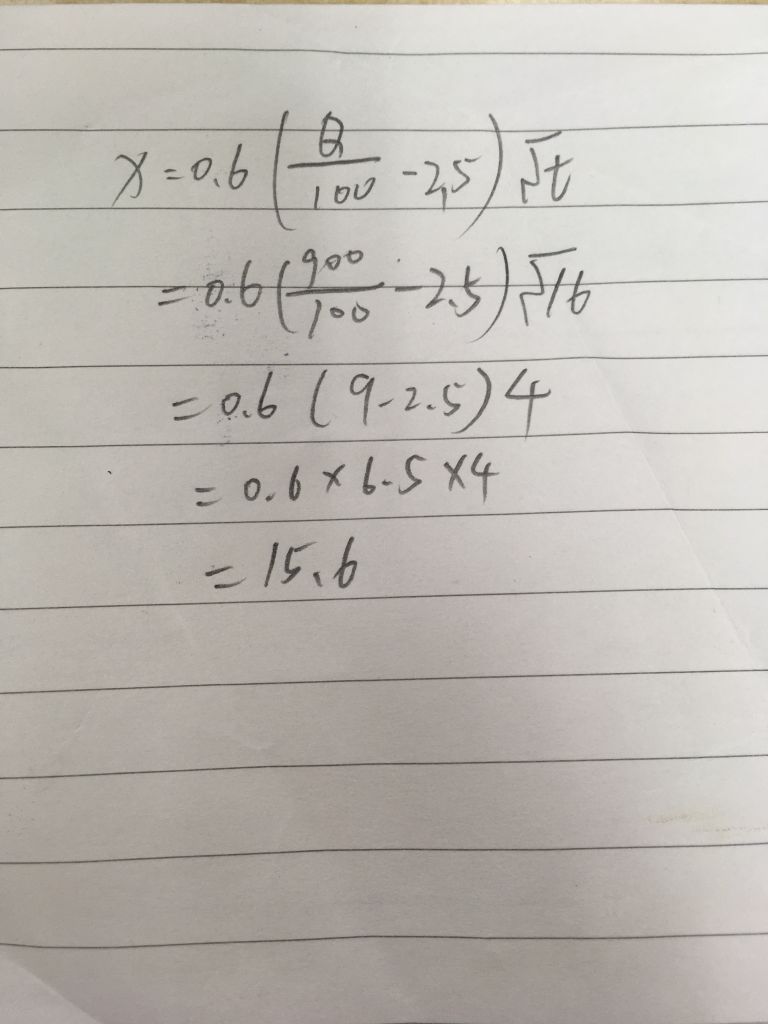 x=0.6(Q/100-2,5)√t
=0.6(900/100-2.5)√16
=0.6(9-2.5)4
=0.6×6.5×4
=15.6